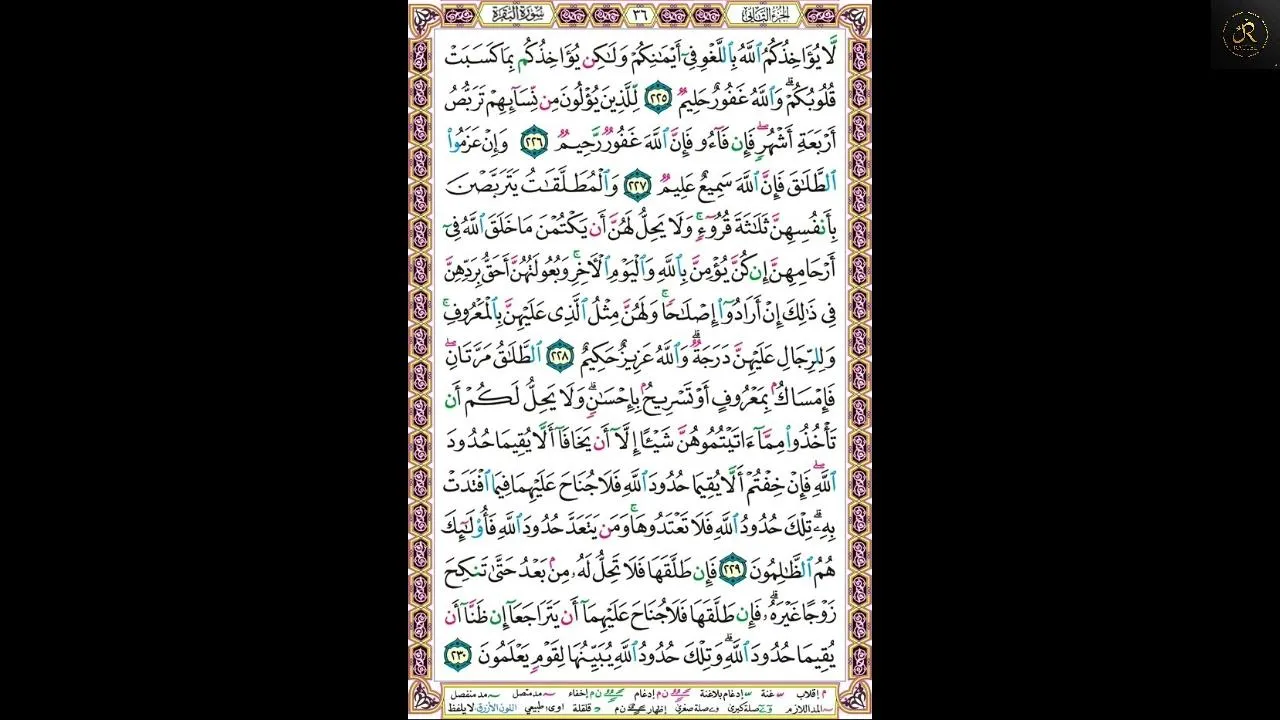 الجزء الثاني
٣٦
سورة البقرة
لَّا يُؤَاخِذُكُمُ ٱللَّهُ بِٱللَّغْوِ فِىٓ أَيْمَـٰنِكُمْ وَلَـٰكِن يُؤَاخِذُكُم بِمَا كَسَبَتْ
قُلُوبُكُمْ ۗ وَٱللَّهُ غَفُورٌ حَلِيمٌ ٢٢٥ لِّلَّذِينَ يُؤْلُونَ مِن نِّسَآئِهِمْ تَرَبُّصُ
أَرْبَعَةِ أَشْهُرٍ ۖ فَإِن فَآءُو فَإِنَّ ٱللَّهَ غَفُورٌ رَّحِيمٌ ٢٢٦ وَإِنْ عَزَمُوا۟
ٱلطَّلَـٰقَ فَإِنَّ ٱللَّهَ سَمِيعٌ عَلِيمٌ ٢٢٧ وَٱلْمُطَلَّقَـٰتُ يَتَرَبَّصْنَ
بِأَنفُسِهِنَّ ثَلَـٰثَةَ قُرُوٓءٍ ۚ وَلَا يَحِلُّ لَهُنَّ أَن يَكْتُمْنَ مَا خَلَقَ ٱللَّهُ فِىٓ
أَرْحَامِهِنَّ إِن كُنَّ يُؤْمِنَّ بِٱللَّهِ وَٱلْيَوْمِ ٱلْـَٔاخِرِ ۚ وَبُعُولَتُهُنَّ أَحَقُّ بِرَدِّهِنَّ
فِى ذَٰلِكَ إِنْ أَرَادُوٓا۟ إِصْلَـٰحًا ۚ وَلَهُنَّ مِثْلُ ٱلَّذِى عَلَيْهِنَّ بِٱلْمَعْرُوفِ ۚ
وَلِلرِّجَالِ عَلَيْهِنَّ دَرَجَةٌ ۗ وَٱللَّهُ عَزِيزٌ حَكِيمٌ ٢٢٨ ٱلطَّلَـٰقُ مَرَّتَانِ ۖ
فَإِمْسَاكٌۢ بِمَعْرُوفٍ أَوْ تَسْرِيحٌۢ بِإِحْسَـٰنٍ ۗ وَلَا يَحِلُّ لَكُمْ أَن
تَأْخُذُوا۟ مِمَّآ ءَاتَيْتُمُوهُنَّ شَيْـًٔا إِلَّآ أَن يَخَافَآ أَلَّا يُقِيمَا حُدُودَ
ٱللَّهِ ۖ فَإِنْ خِفْتُمْ أَلَّا يُقِيمَا حُدُودَ ٱللَّهِ فَلَا جُنَاحَ عَلَيْهِمَا فِيمَا ٱفْتَدَتْ
بِهِۦ ۗ تِلْكَ حُدُودُ ٱللَّهِ فَلَا تَعْتَدُوهَا ۚ وَمَن يَتَعَدَّ حُدُودَ ٱللَّهِ فَأُو۟لَـٰٓئِكَ
هُمُ ٱلظَّـٰلِمُونَ ٢٢٩ فَإِن طَلَّقَهَا فَلَا تَحِلُّ لَهُۥ مِنۢ بَعْدُ حَتَّىٰ تَنكِحَ
زَوْجًا غَيْرَهُۥ ۗ فَإِن طَلَّقَهَا فَلَا جُنَاحَ عَلَيْهِمَآ أَن يَتَرَاجَعَآ إِن ظَنَّآ أَن
يُقِيمَا حُدُودَ ٱللَّهِ ۗ وَتِلْكَ حُدُودُ ٱللَّهِ يُبَيِّنُهَا لِقَوْمٍ يَعْلَمُونَ ٢٣٠
م إقلاب غنة إدغام بلاغنة ن م إدغام ن م إخفاء مد متصل مد منفصل
المد اللازم صلة كبرى صلة صغرى إظهار ن م قلقلة طبيعي اللون الأزرق لا يلفظ